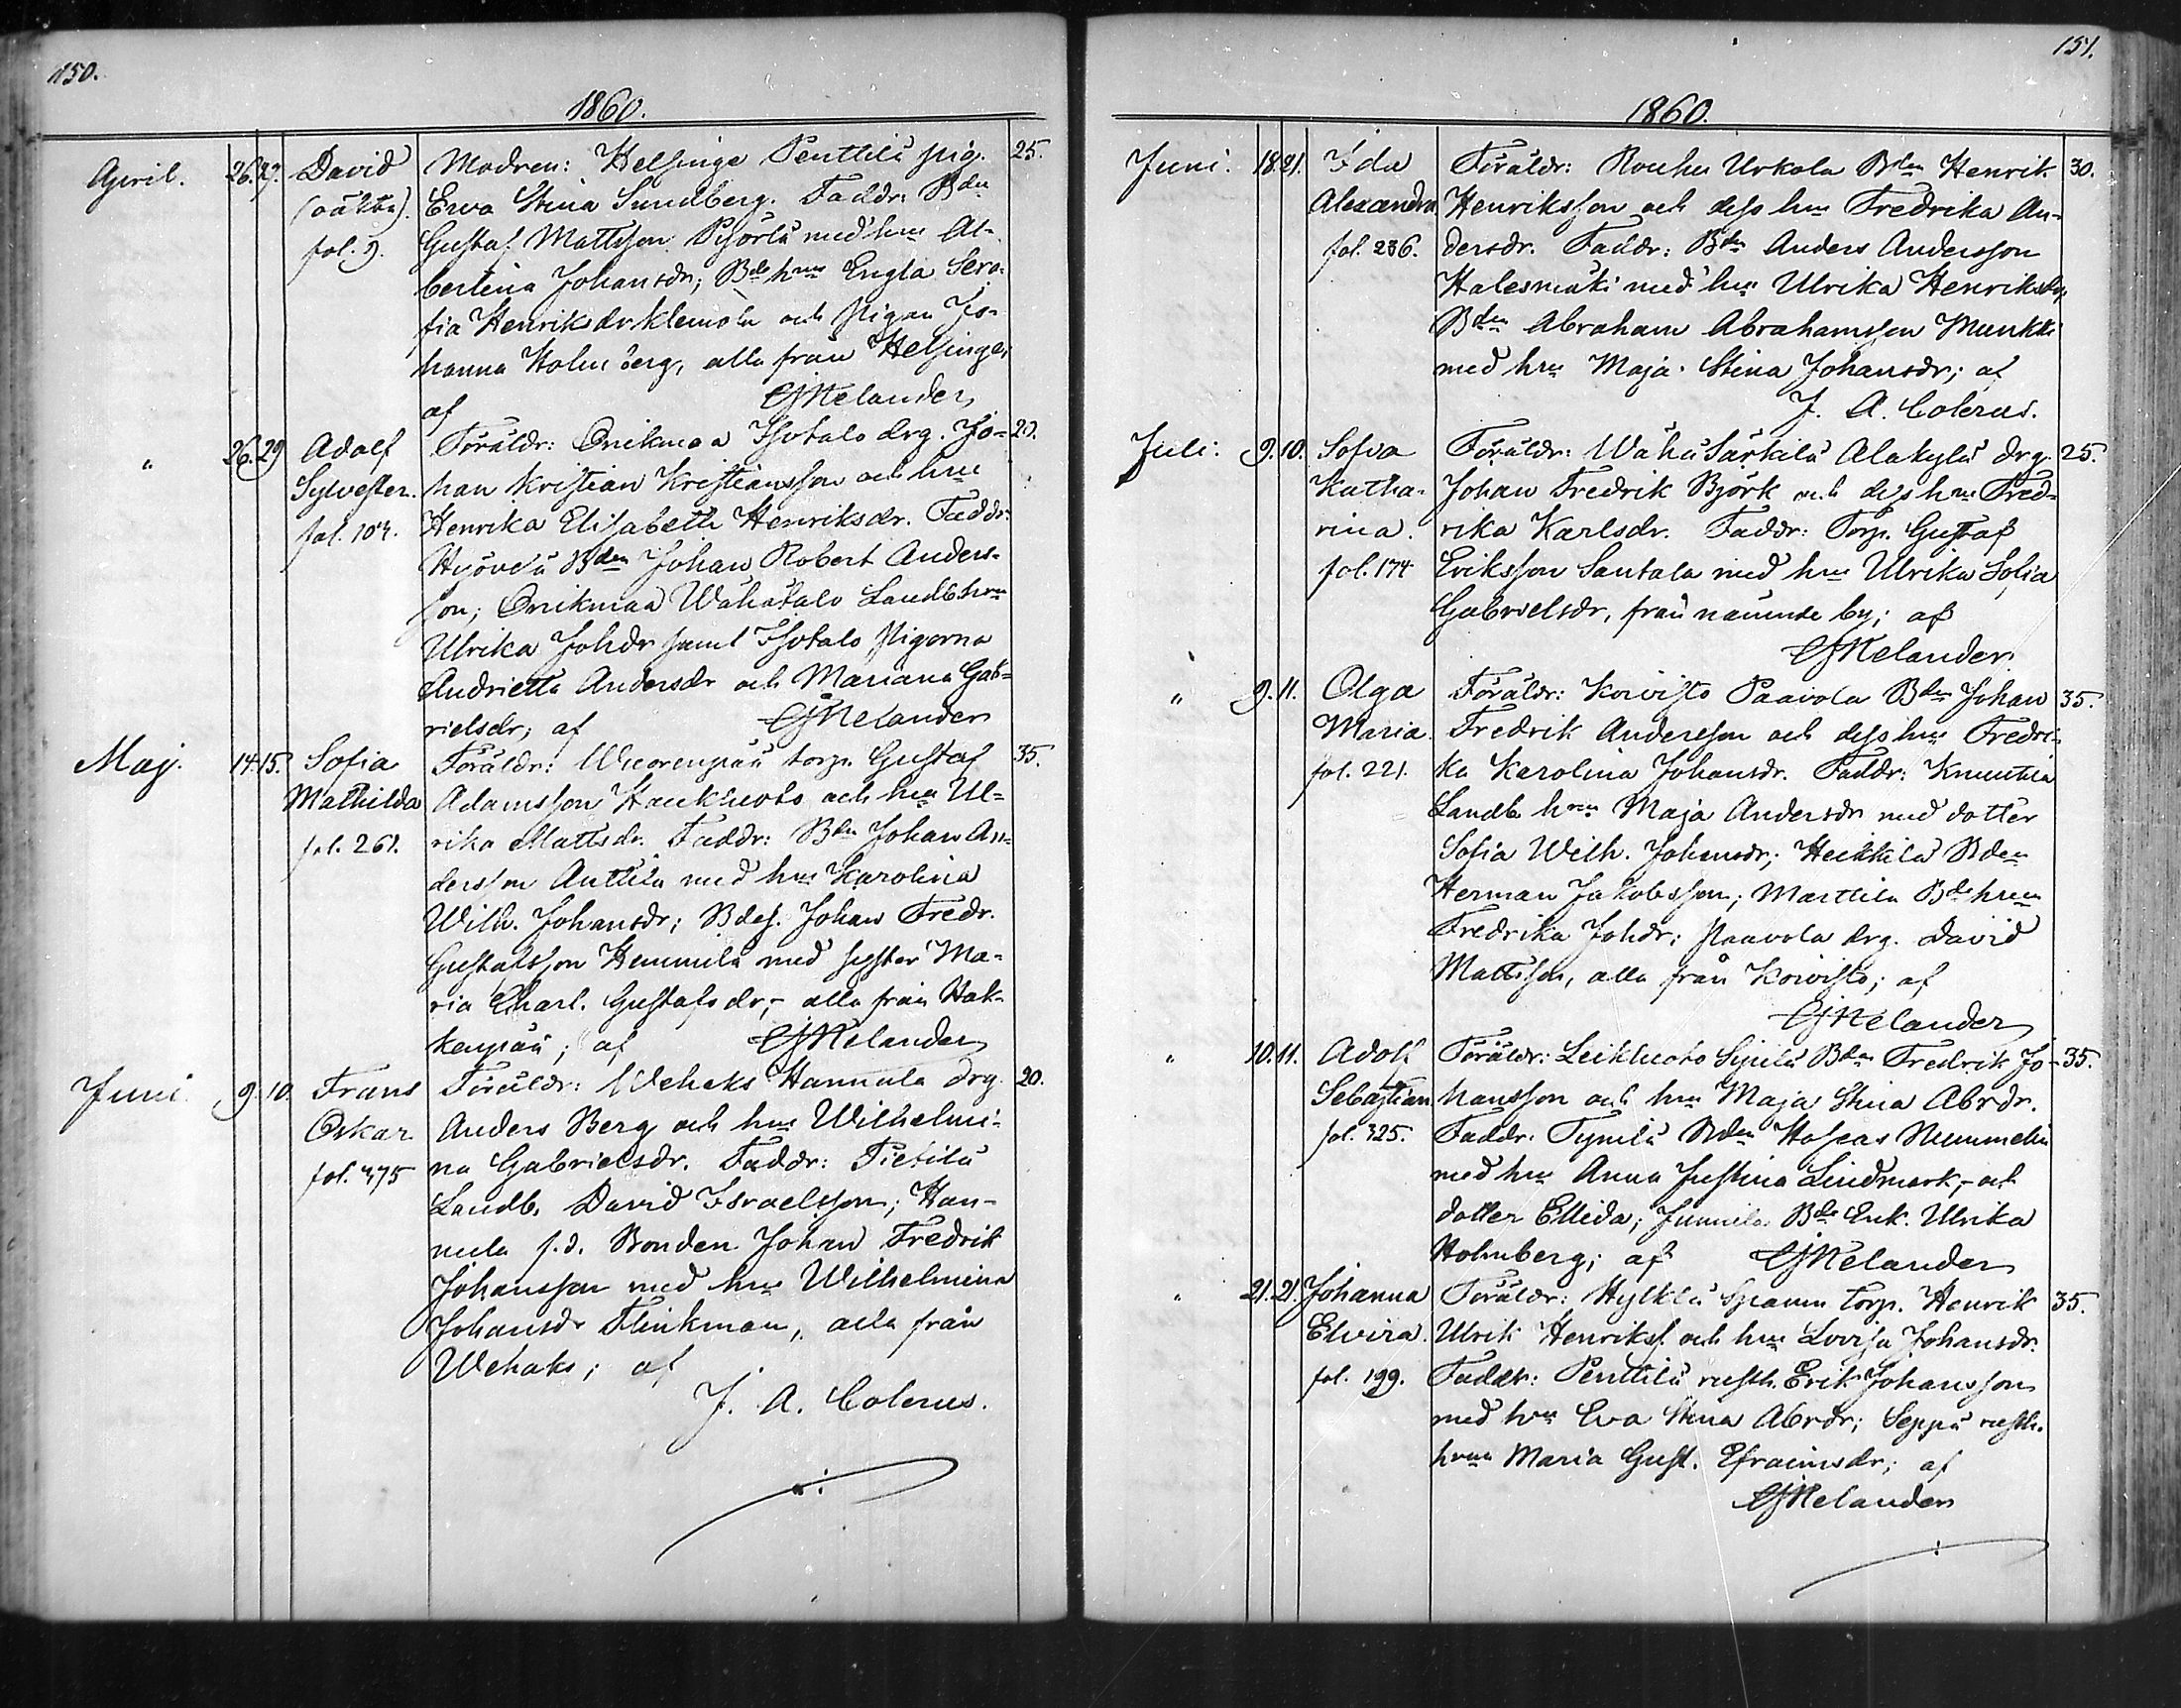 150.
1860.
April. 26. 29. David Modren: Helsinge Penttilä pig. 25.
(oäkta). Ewa Stina Sundberg. Faddr: Bdn
fol. 9. Gustaf Mattsson Pisörlä med hu Al-
bertina Johansdr; Bde hru Engla Sero-
fia Henriksdr Klemola och Pigan Jo-
hanna Holmberg, alla från Helsinge;
af CJMelander
" 26. 29 Adolf Föräldr: Onikmaa Isotalo drg. Jo- 20.
Sylvester. han Kristian Kristiansson och hru
fol. 104. Henrika Elisabeth Henriksdr. Faddr:
Bden Johan Robert Anders-
son; Onikmaa Wähätalo Landb. hru
Ulrika Johdr samt Isotalo Pigorna
Andrietta Andersdr och Mariana Gab-
rielsdr; af CJMelander
Maj. 14. 15. Sofia Föräldr: Wuorenpää torp. Gustaf 35.
Mathilda Adamsson Haukkuoto och hu Ul-
fol. 261. rika Mattsdr. Faddr: Bdn Johan An-
dersson Anttila med hu Karolina
Wilh. Johansdr; Bdes. Johan Fredr.
Gustafsson Hemmilä med syster Ma-
ria Charl. Gustafsdr, - alla från Hak-
kenpää; af CJMelander
Juni 9. 10. Frans Föräldr: Wehaks Hannula drg. 20.
Oskar Anders Berg och hu Wilhelmi-
fol. 375 na Gabrielsdr. Faddr: Pietilä
Landb. David Israelsson; Han-
nula f.d. Bonden Johan Fredrik
Johansson med hu Wilhelmina
Johansdr Flinkman, alla från
Wehaks; af
J. A. Colerus.
151.
1860.
Juni. 18. 21. Ida Föräldr: Rouhu Urkola Bden Henrik 30.
Alexandra Henriksson och dess hu Fredrika An-
fol. 236. dersdr. Faddr: Bdn Anders Andersson
Halesmäki med hu Ulrika Henriksdr,
Bden Abraham Abrahamsson Munkki
med hru Maja Stina Johansdr; af
J. A. Colerus.
Juli: 9. 10. Sofia Föräldr: Wähä Särkilä Alakylä drg. 25.
Katha- Johan Fredrik Björk och dess hru Fred-
rina. rika Karlsdr. Faddr: Torp. Gustaf
fol. 174 Eriksson Santala med hru Ulrika Sofia
Gabrielsdr, från nämnde by; af
CJMelander
" 9. 11. Olga Föräldr: Koivisto Paavola Bdn Johan 35.
Maria. Fredrik Andersson och dess hru Fredri-
fol. 221. ka Karolina Johansdr. Faddr: Knuutila
Landb. hru Maja Andersdr med dotter
Sofia Wilh. Johansdr; Heikkilä Bden
Herman Jakobsson; Marttila Bde hrun
Fredrika Johdr; Paavola drg. David
Mattsson, alla från Koivisto; af
CJMelander
" 10. 11. Adolf Föräldr: Leikluoto Sipilä Bdn Fredrik Jo- 35.
Sebastian hansson och hru Maja Stina Abrdr.
fol. 325. Faddr: Bden Hoseas Nummelin
med hru Anna Justina Lindmark, - och
dotter Ellida; Junnila Bde Enk. Ulrika
Holmberg; af CJMelander
" 21. 21. Johanna Föräldr: Hylkilä Torp. Henrik 35.
Elvira. Ulrik Henrikss. och hru Lovisa Johansdr.
fol. 199. Faddr: Penttilä rusth. Erik Johansson
med hru Eva Stina Abrdr; Seppä rusth.
hrun Maria Gust. Efraimsdr; af
CJMelander